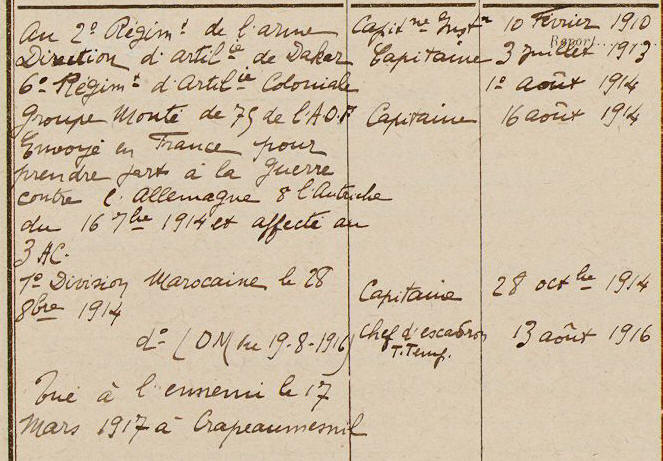 Au 2e Régimt de l'arme Capitne Instr 10 Février 1910
Report
Direction d'artilie de Dakar Capitaine 3 Juillet 1913
6e Régimt d'Artilie Coloniale 1er août 1914
Groupe Monté de 75 de l'A.O.F Capitaine 16 août 1914
Envoyé en France pour
prendre part à la Guerre
contre l'Allemagne & l'Autriche
du 16 7bre 1914 et affecté au
3 AC.
1e Division Marocaine le 28 Capitaine 28 octbre 1914
8bre 1914
do (DM du 19-8-1916) Chef d'escadron 13 août 1916
T. Temp.
Tué à l'ennemi le 17
Mars 1917 à Crapeaumesnil